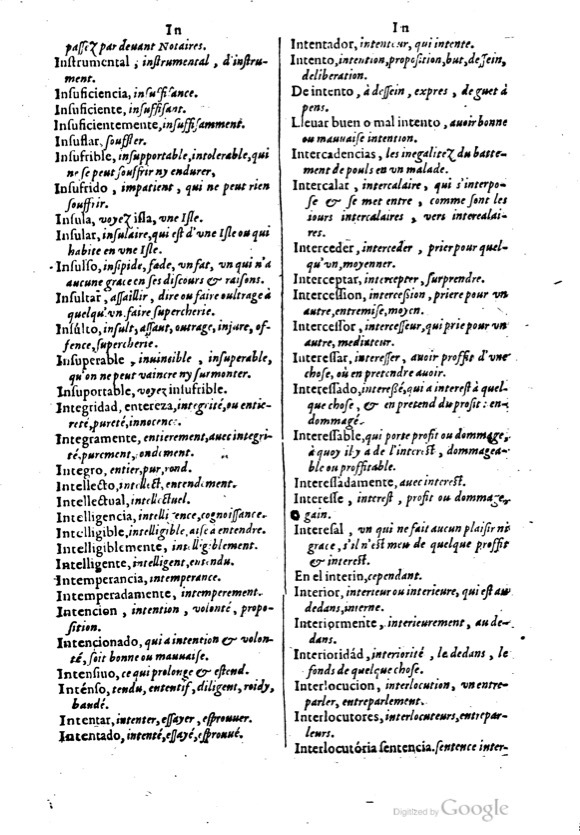 In
passez par deuant Notaires.
Instrumental, instrumental, d'instru-
ment.
Insuficiencia, insuffisance.
Insuficiente, insuffisant.
Insuficientemente, insuffisamment.
Insuflar, souffler.
Insufrible, insupportable, intolerable, qui
ne se peut souffrir ny endurer,
Insufrido, impatient, qui ne peut rien
souffrir.
Insula, voyez isla, vne Isle.
Insular, insulaire, qui est d'vne Isle ou qui
habite en vne Isle.
Insulso, insipide, fade, vn fat, vn qui n'a
aucune grace en ses discours & raisons.
Insultar, assaillir, dire ou faire oultrage à
quelqu'vn, faire supercherie.
Insúlto, insult, assaut, outrage, injure, of-
fence, supercherie.
Insuperable, inuincible, insuperable,
qu'on ne peut vaincre ny surmonter.
Insuportable, voyez insufrible.
Integridad, entereza, integrité, ou entie-
reté, pureté, innocence.
Integramente, entierement, auec integri-
té, purement, rondement.
Integro, entier, pur, rond.
Intellecto, intellect, entendement.
Intellectual, intellectuel.
Intelligencia, intelligence, cognoissance.
Intelligible, intelligible, aisé à entendre.
Intelligiblemente, intelligiblement.
Intelligente, intelligent, entendu.
Intemperancia, intemperance.
Intemperadamente, intemperement.
Intencion, intention, volonté, propo-
sition.
Intencionado, qui a intention & volon-
té, soit bonne ou mauuaise.
Intensiuo, ce qui prolonge & estend.
Inténso, tendu, ententif, diligent, roidy,
baudé.
Intentar, intenter, essayer, esprouuer.
Intentado, intenté, essayé, esprouué.
In
Intentador, intenteur, qui intente.
Intento, intention, proposition, but, dessein,
deliberation.
De intento, à dessein, expres, de guet à
pens.
Lleuar buen o mal intento, auoir bonne
ou mauuaise intention.
Intercadencias, les inegalitez du batte-
ment de pouls en vn malade.
Intercalar, intercalaire, qui s'interpo-
se & se met entre, comme sont les
iours intercalaires, vers interealai-
res.
Interceder, interceder, prier pour quel-
qu'vn, moyenner.
Interceptar, intercepter, surprendre.
Intercession, intercession, priere pour vn
autre, entremise, moyen.
Intercessor, intercesseur, qui prie pour vn
autre, mediateur.
Interessar, interesser, auoir proffit d'vne
chose, ou en pretendre auoir.
Interessado, interessé, qui a interest à quel-
que chose, & en pretend du profit: en-
dommagé.
Interessable, qui porte profit ou dommage,
à quoy il y a de l'interest, dommagea-
ble ou proffitable.
Interessadamente, auec interest.
Interesse, interest, profit ou dommage,
gain.
Interesal, vn qui ne fait aucun plaisir ni
grace, s'il n'est meu de quelque proffit
& interest.
En el interin, cependant.
Interior, interieur ou interieure, qui est au
dedans, interne.
Interiormente, interieurement, au de-
dans.
Interioridád, interiorité, le dedans, le
fonds de quelque chose.
Interlocucion, interlocution, vn entre-
parler, entreparlement.
Interlocutores, interlocuteurs, entrepar-
leurs.
Interlocutória sentencia. sentence inter-
Digitized by Google